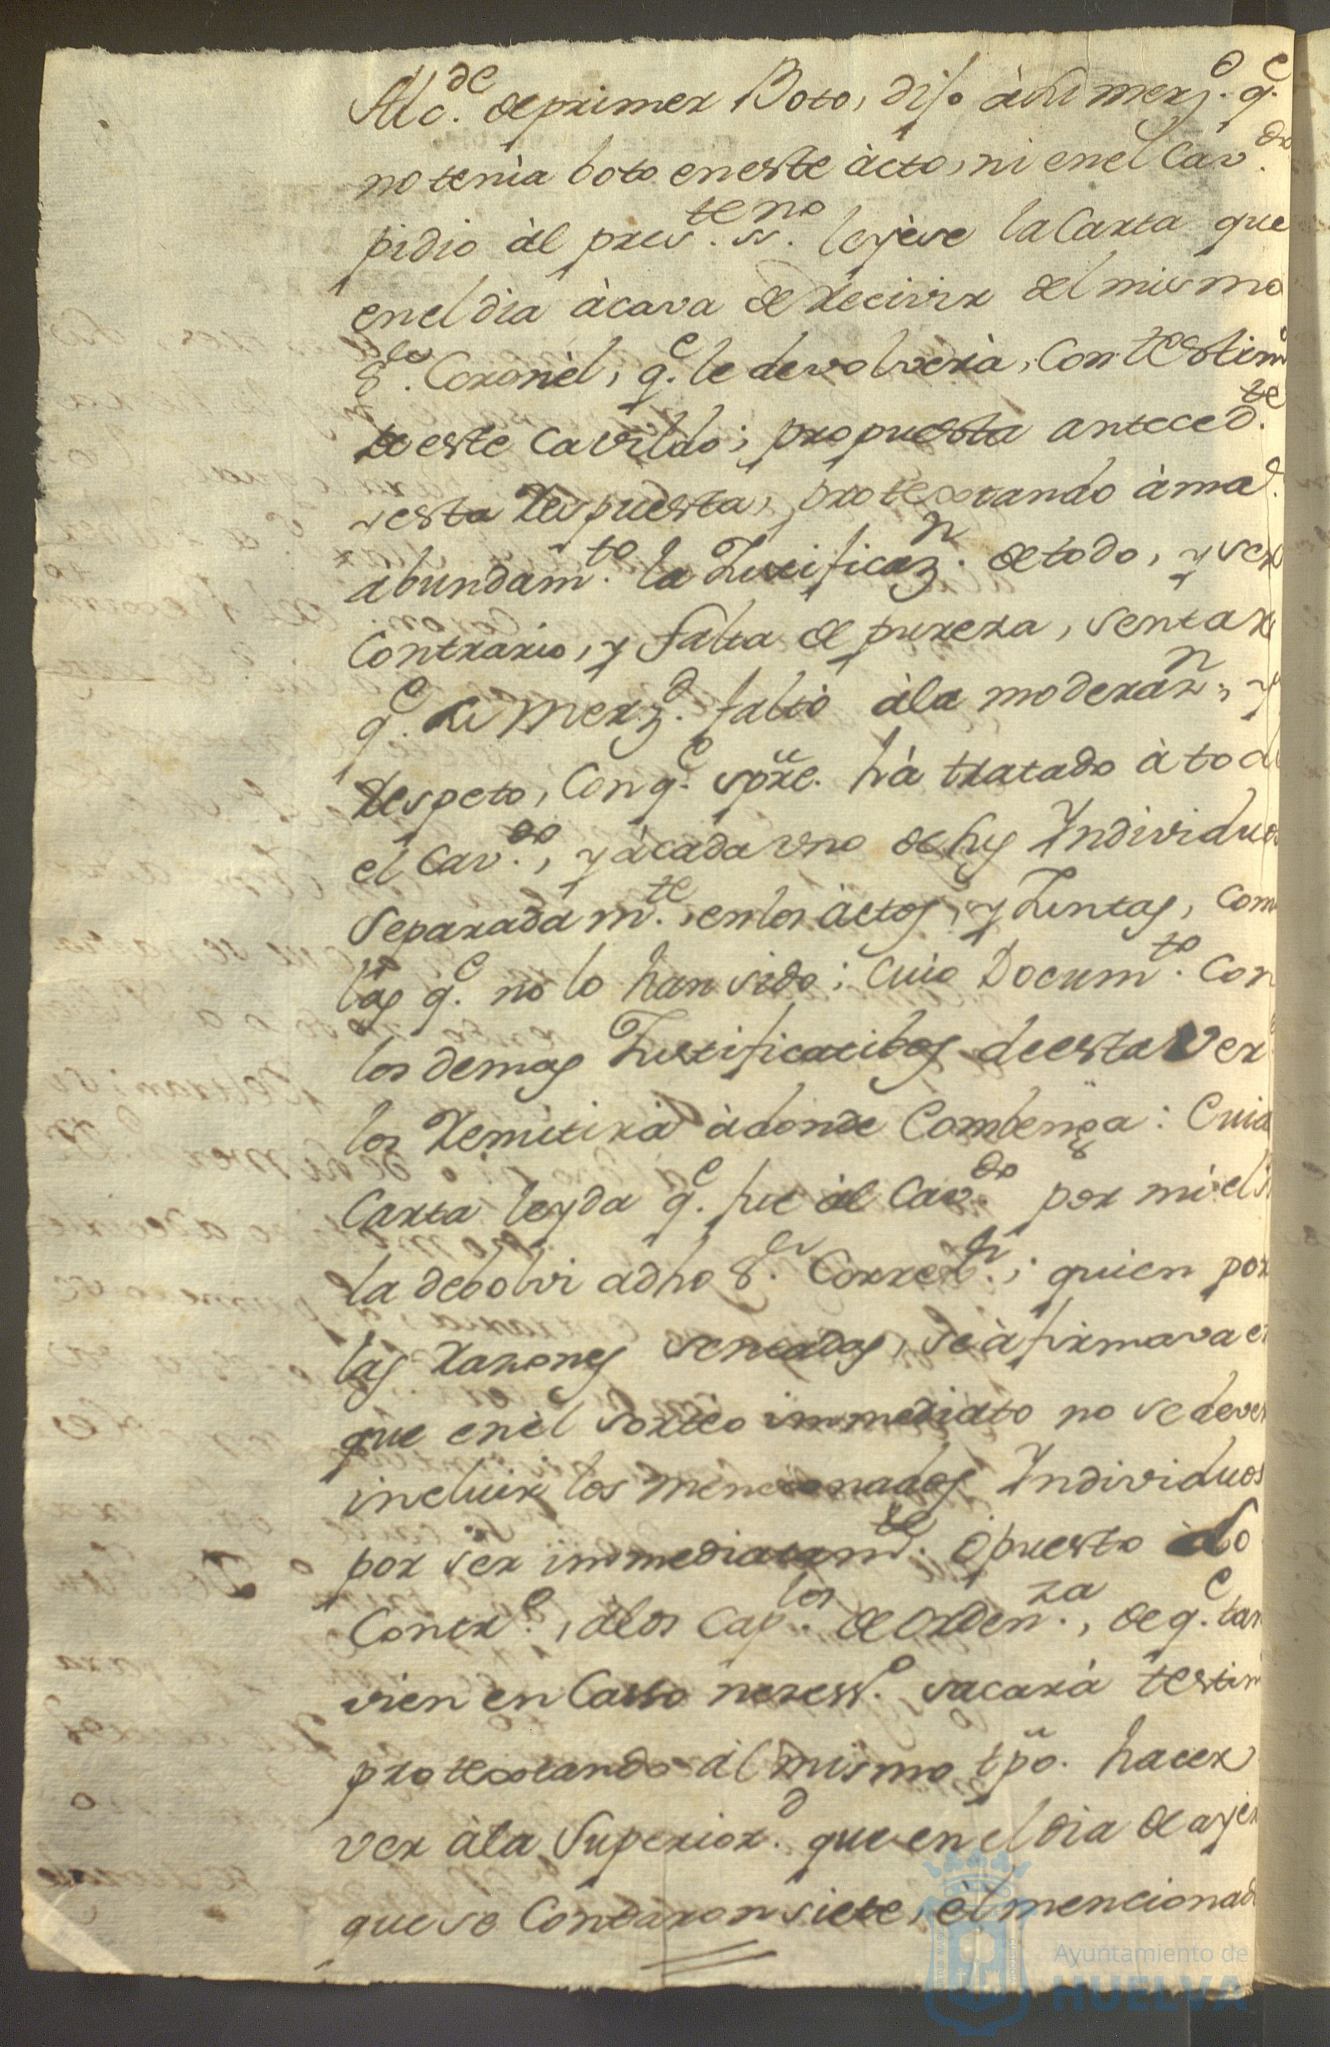 Alc.de de primer Boto, dijo à su merz.d q.e
no tenia boto en este àcto, ni en el Cav.do
pidio àl pres.te ss.no leyese la Carta que
en el dia àcava de Recivir del mismo
S.or Coronèl, q.e le devolverà, con testim.o
de este Cavildo; propuesta anteced.te
y esta Respuesta, protextando àma.r
abundam.to la Justificaz.n de todo, y ser
Contrario, y falta de pureza, sentar
q.e su Merz.d faltò àla moderaz.n, y
Respeto, Con q.e spre. hà tratado à todo
el Cav.do, y àcada uno de sus Individuos
Separadam.te, en los àctos, y Juntas, com
las q.e no lo han sido; Cuio Docum.to Con
los demas Justificatibos de esta Ver
los Remitirà àdonde Combenga: Cuia
Carta leyda q.e fue àl Cav.do por mi el
la debolvi a dho S.or Correx.or; quien por
las Razones sentadas, se àfirmava en
que en èl sorteo immediato no se dever
incluir los mencionados Individuos
por ser immediatam.te òpuesto àlo
Contr.o, àlos Cap.los de Orden.za, de q.e tan
vien en Casso nezess.o sacarà testim
protextando àl mismo tpo. hacer
ver àla Superior.d que en el dia de ayer
que se Contaron siete, èl mencionad
Ayuntamiento de
HUELVA